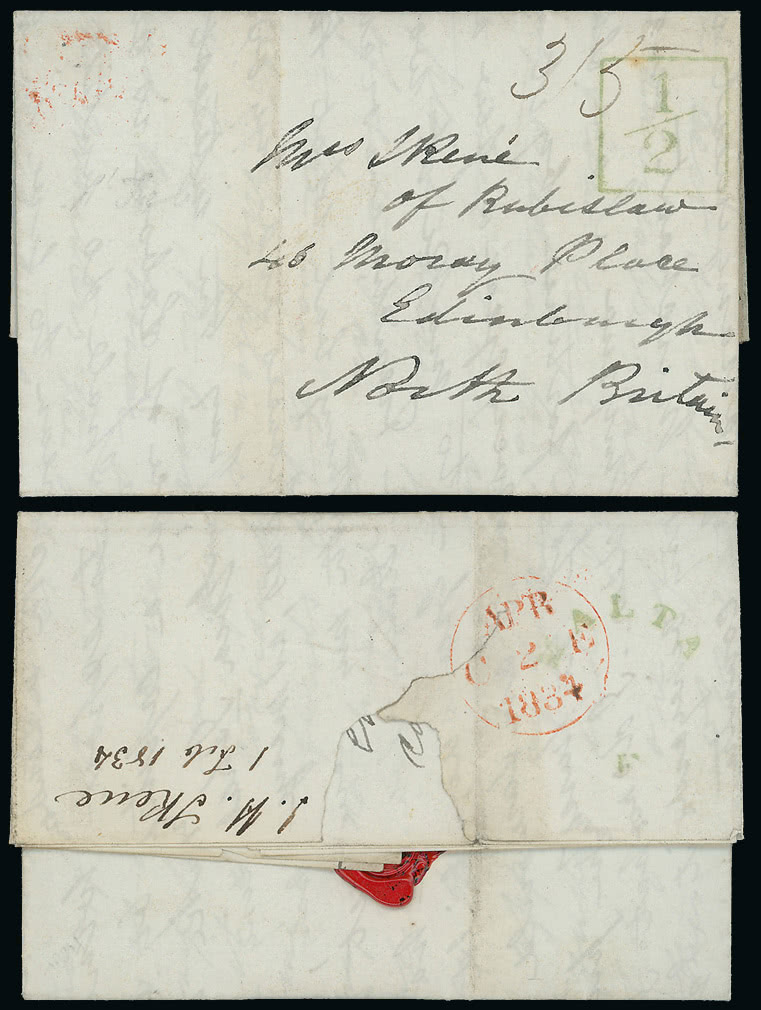 3/5
1/2
Mrs Skene
of Rubislaw
46 Moray Place
Edinburgh
North Britain
APR
C 2 E
1834
MALTA
F
J. H. Skene
1 Feb 1834